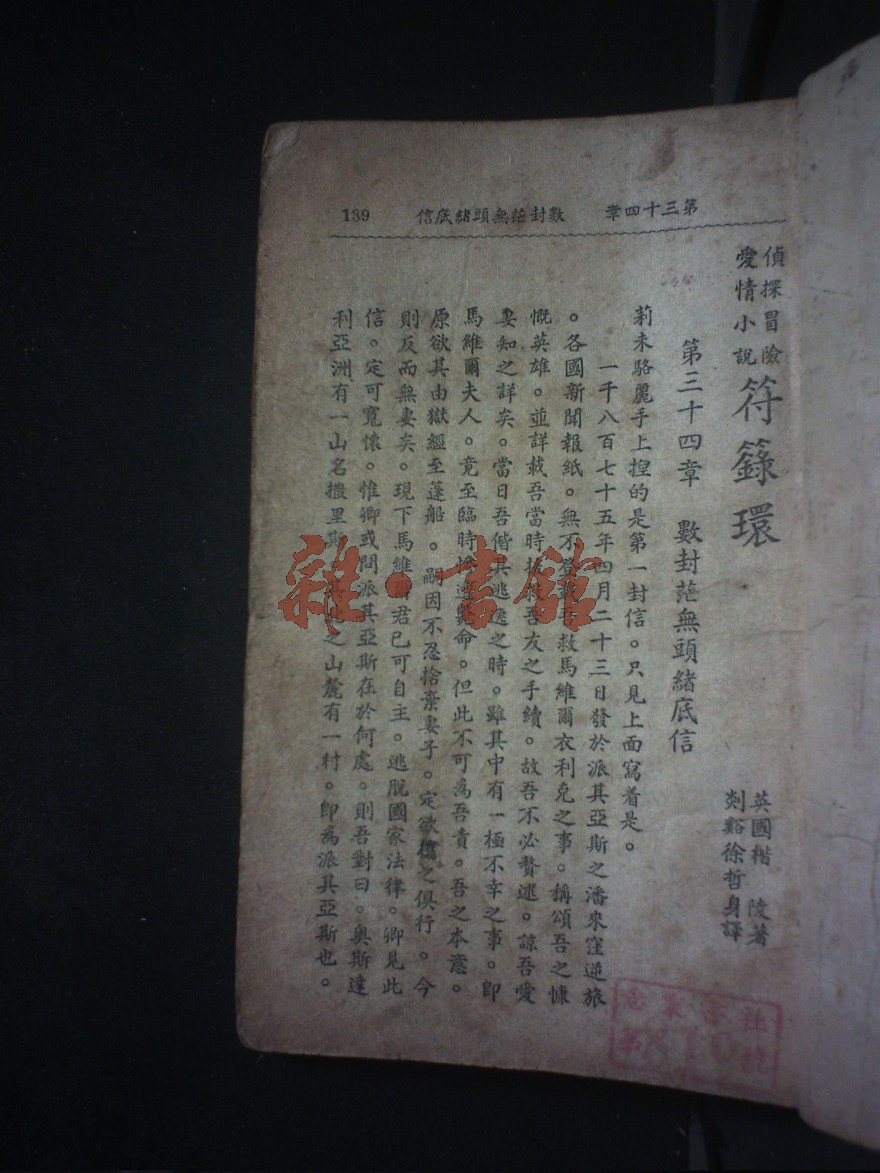 第三十四章 數封茫無頭緒底信 139
偵探冒險
愛情小說
符籙環
英國楷陵著
剡谿徐哲身譯
第三十四章 數封茫無頭緒底信
莉未駱麗手上揑的是第一封信。只見上面寫着是。
一千八百七十五年四月二十三日發於派其亞斯之潘來窪逆旅
。各國新聞報紙。無不登載吾救馬維爾衣利克之事。稱頌吾之慷
慨英雄。並詳載吾當時拯救吾友之手續。故吾不必贅述。諒吾愛
妻知之詳矣。當日吾偕其逃逸之時。雖其中有一極不幸之事。卽
馬維爾夫人。竟至臨時慘遭斃命。但此不可爲吾責。吾之本意。
原欲其由獄經至蓬船。嗣因不忍捨棄妻子。定欲攜之俱行。今
則反而無妻矣。現下馬維爾君已可自主。逃脫國家法律。卿見此
信。定可寬懷。惟卿或問派其亞斯在於何處。則吾對曰。奧斯達
利亞洲有一山名撒里斯 之山麓有一村。卽爲派其亞斯也。
雜·書館